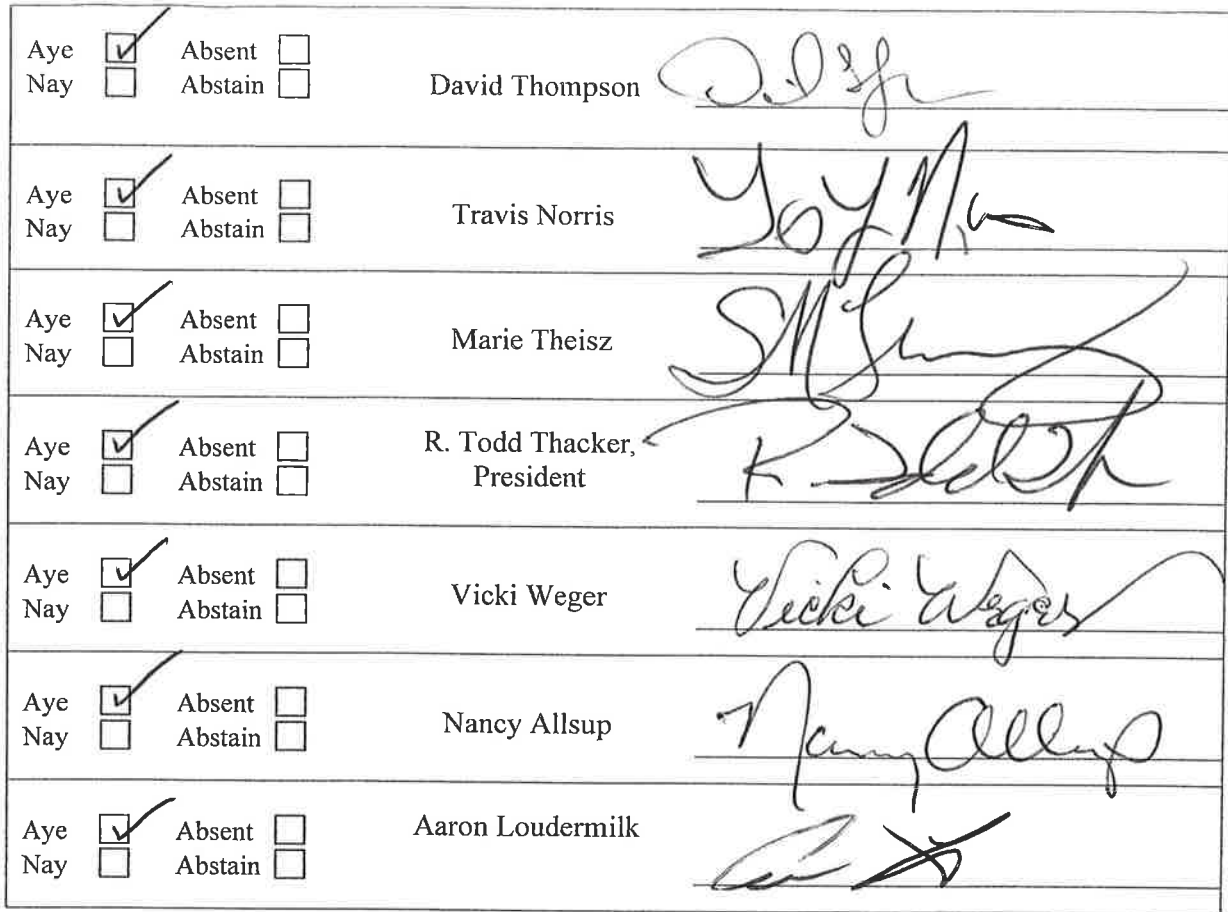 Aye ☑ Absent ☐
Nay ☐ Abstain ☐
David Thompson
Aye ☑ Absent ☐
Nay ☐ Abstain ☐
Travis Norris
Aye ☑ Absent ☐
Nay ☐ Abstain ☐
Marie Theisz
Aye ☑ Absent ☐
Nay ☐ Abstain ☐
R. Todd Thacker,
President
Aye ☑ Absent ☐
Nay ☐ Abstain ☐
Vicki Weger
Vicki Weger
Aye ☑ Absent ☐
Nay ☐ Abstain ☐
Nancy Allsup
Nancy Allsup
Aye ☑ Absent ☐
Nay ☐ Abstain ☐
Aaron Loudermilk